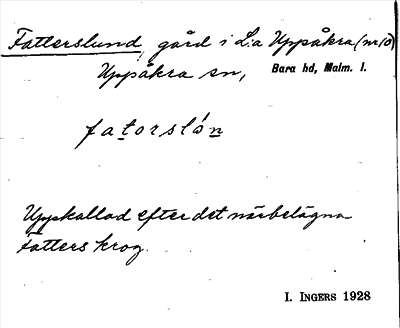 Fatterslund, gård i L:a Uppåkra (nr 10)
Uppåkra sn, Bara hd, Malm. l.
fatorslón
Uppkallad efter det närbelägna
Fatters krog.
I. INGERS 1928